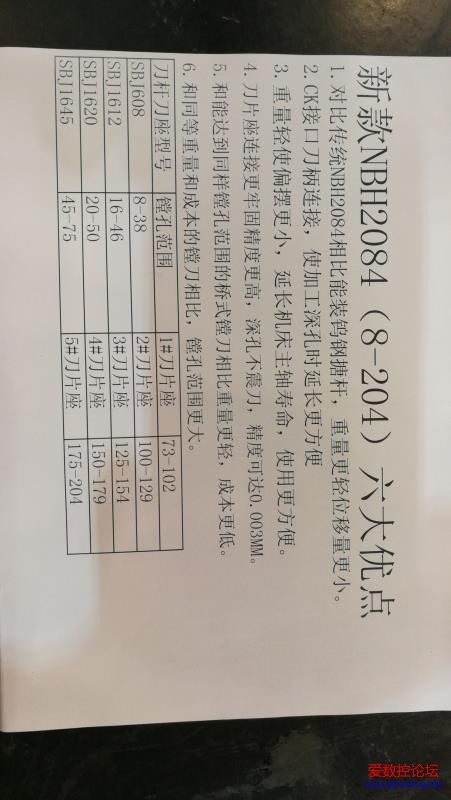 新款NBH2084（8-204）六大优点
1. 对比传统NBH2084相比能装钨钢搪杆，重量更轻位移量更小。
2. CK接口刀柄连接，使加工深孔时延长更方便
3. 重量轻使偏摆更小，延长机床主轴寿命，使用更方便。
4. 刀片座连接更牢固精度更高，深孔不震刀，精度可达0.003MM。
5. 和能达到同样镗孔范围的桥式镗刀相比重量更轻，成本更低。
6. 和同等重量和成本的镗刀相比，镗孔范围更大。
刀杆刀座型号 镗孔范围 1#刀片座 73-102
SBJ608 8-38 2#刀片座 100-129
SBJ1612 16-46 3#刀片座 125-154
SBJ1620 20-50 4#刀片座 150-179
SBJ1645 45-75 5#刀片座 175-204
爱数控论坛